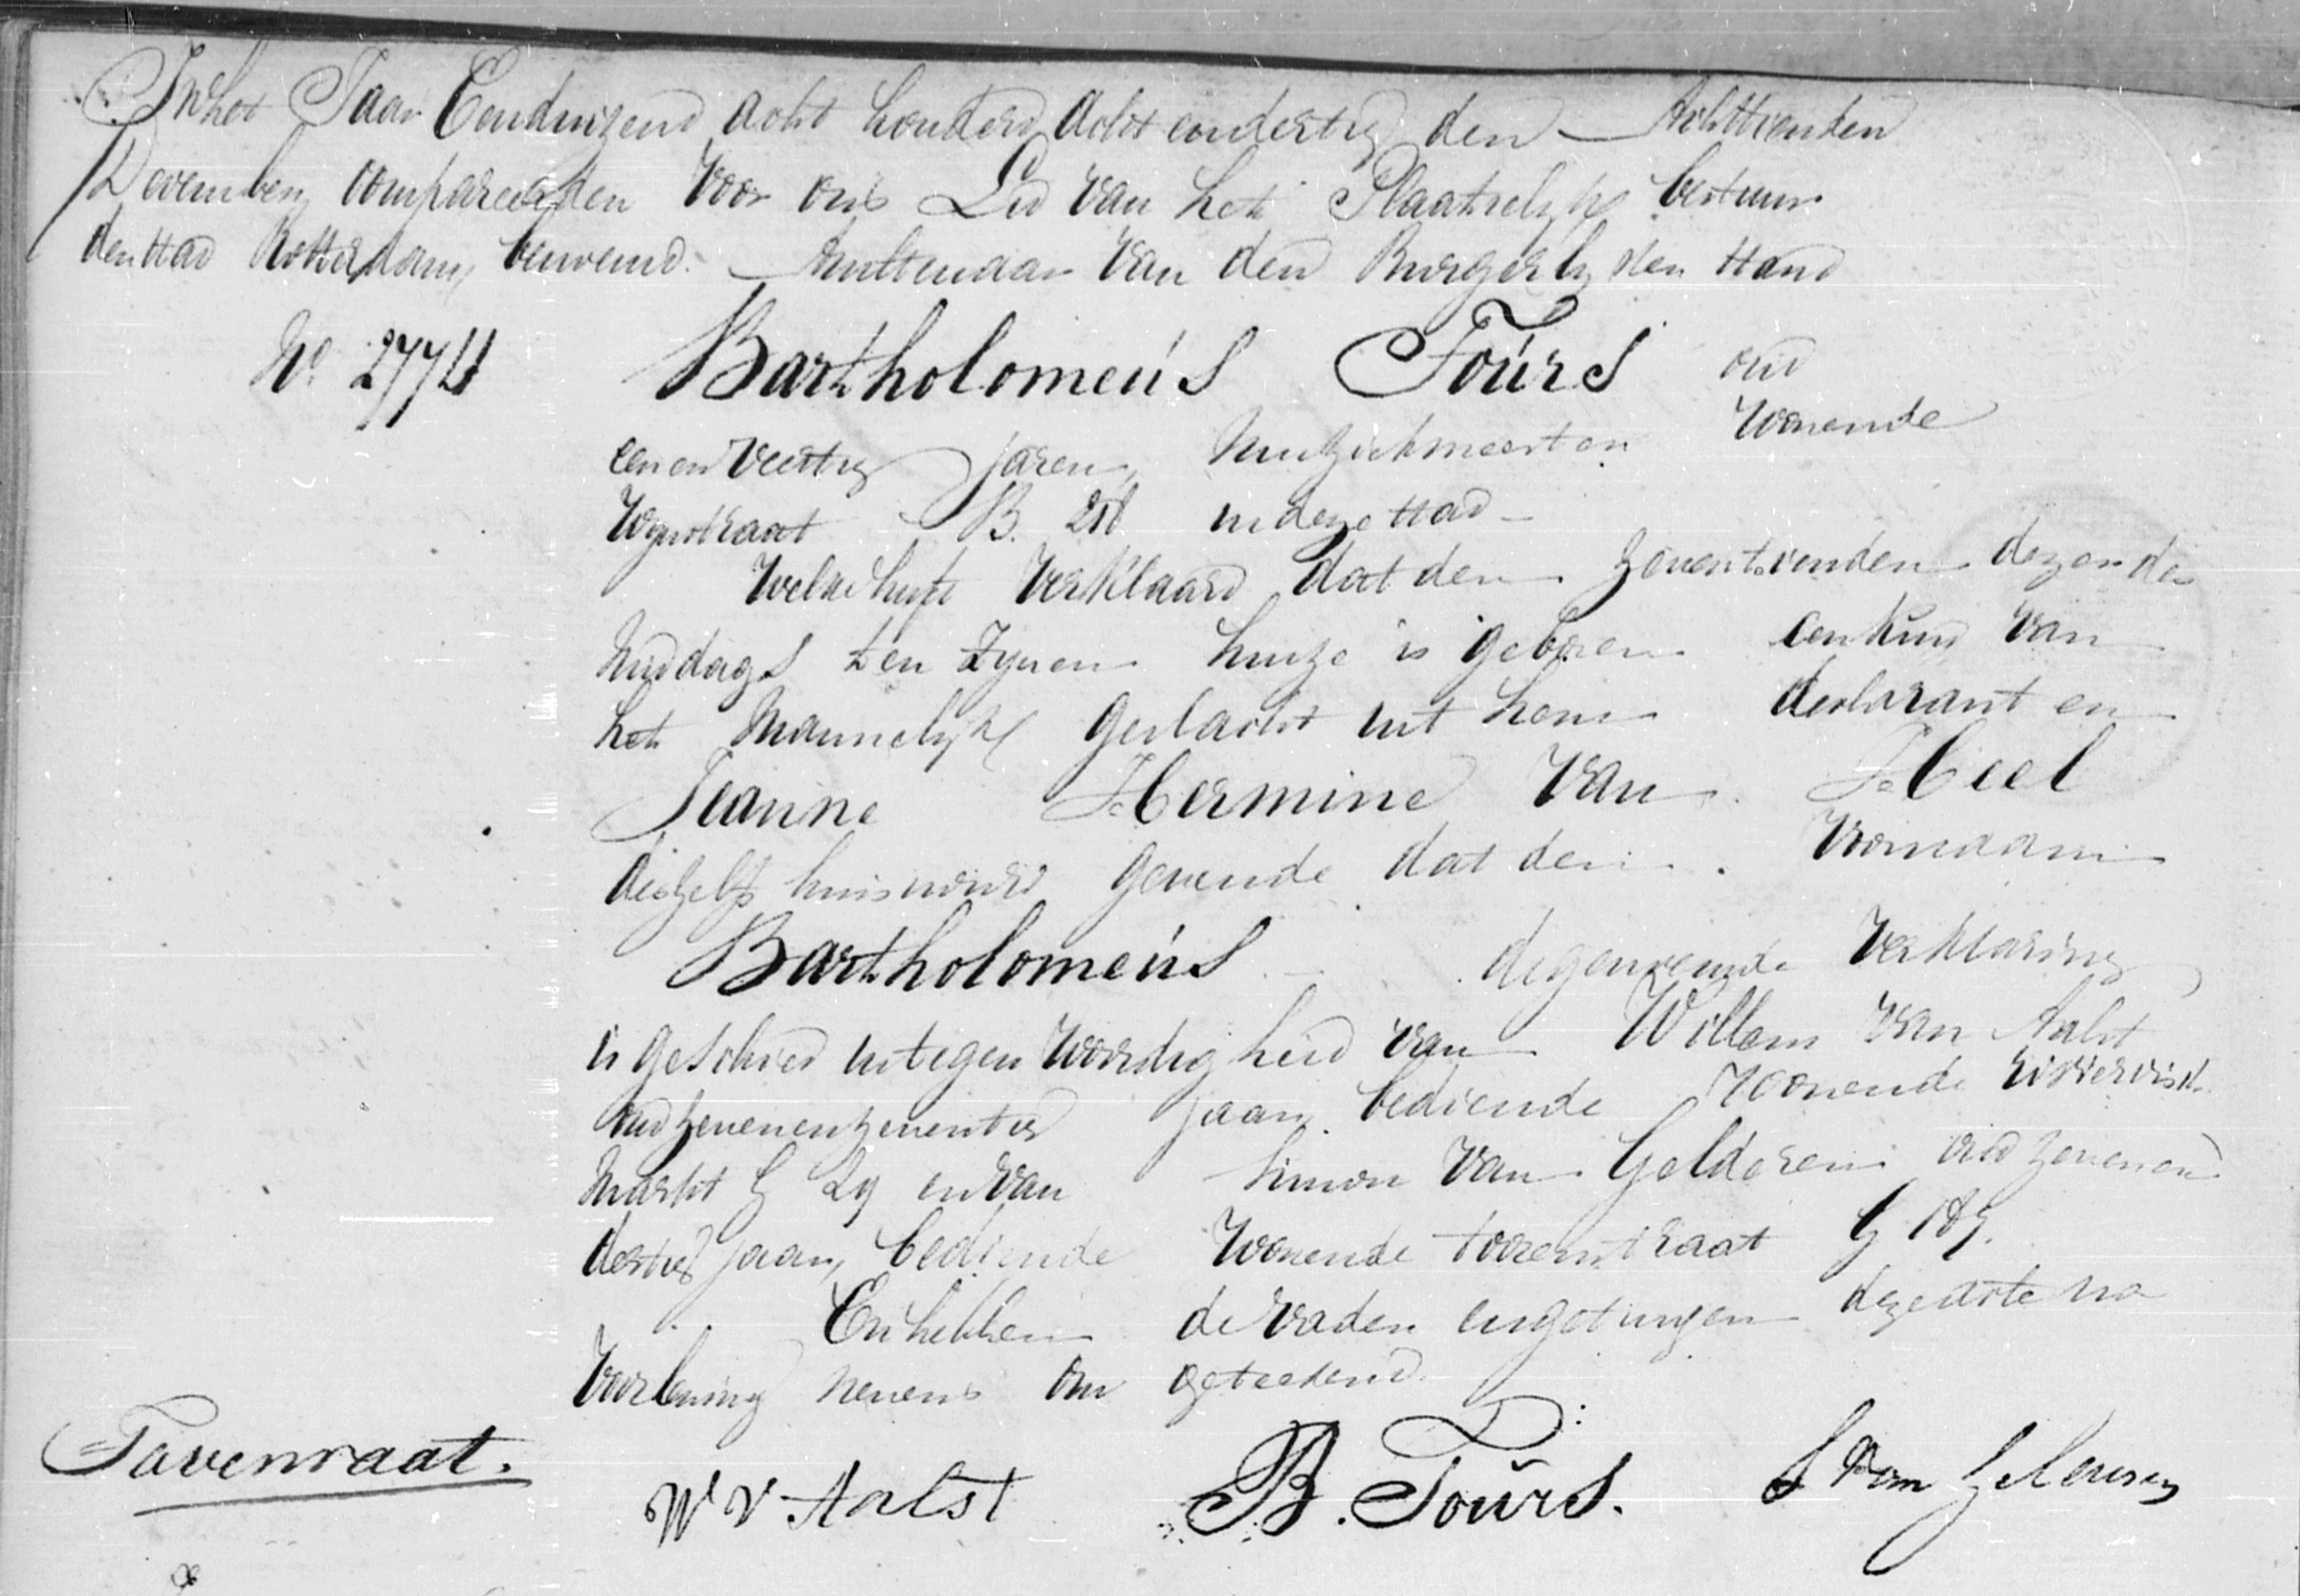 In het Jaar Eenduizend acht honderd acht en dertig den Achttienden
December, compareerden voor ons Lid van het Plaatselyk bestuur
der stad Rotterdam, benoemd Ambtenaar van den Burgerlyken stand
No. 2774 Bartholomeús Toúrs oud
een en veertig jaren, Muziekmeester wonende
Wynstraat B. in deze stad
Welke heeft verklaard dat den zeventienden dezer des
middags ten zynen huize is geboren een kind van
het mannelyk geslacht uit hem declarant en
Jeanne Hermine van Heel
deszelfs huisvrouw gevende dat den voornaam
Bartholomeús degemelde verklaring
is geschied in tegenwoordigheid van Willem van Aalst
oud zevenenzeventig jaar, bediende wonende riviervisch
markt G 29 en van Simon van Gelderen oud zevenen
dertig jaar, bediende wonende torenstraat G
En hebben de vader en getuigen deze acte na
voorlezing nevens ons geteekend.
Tavenraat.
W V Aalst B. Toúrs. S van Gelderen